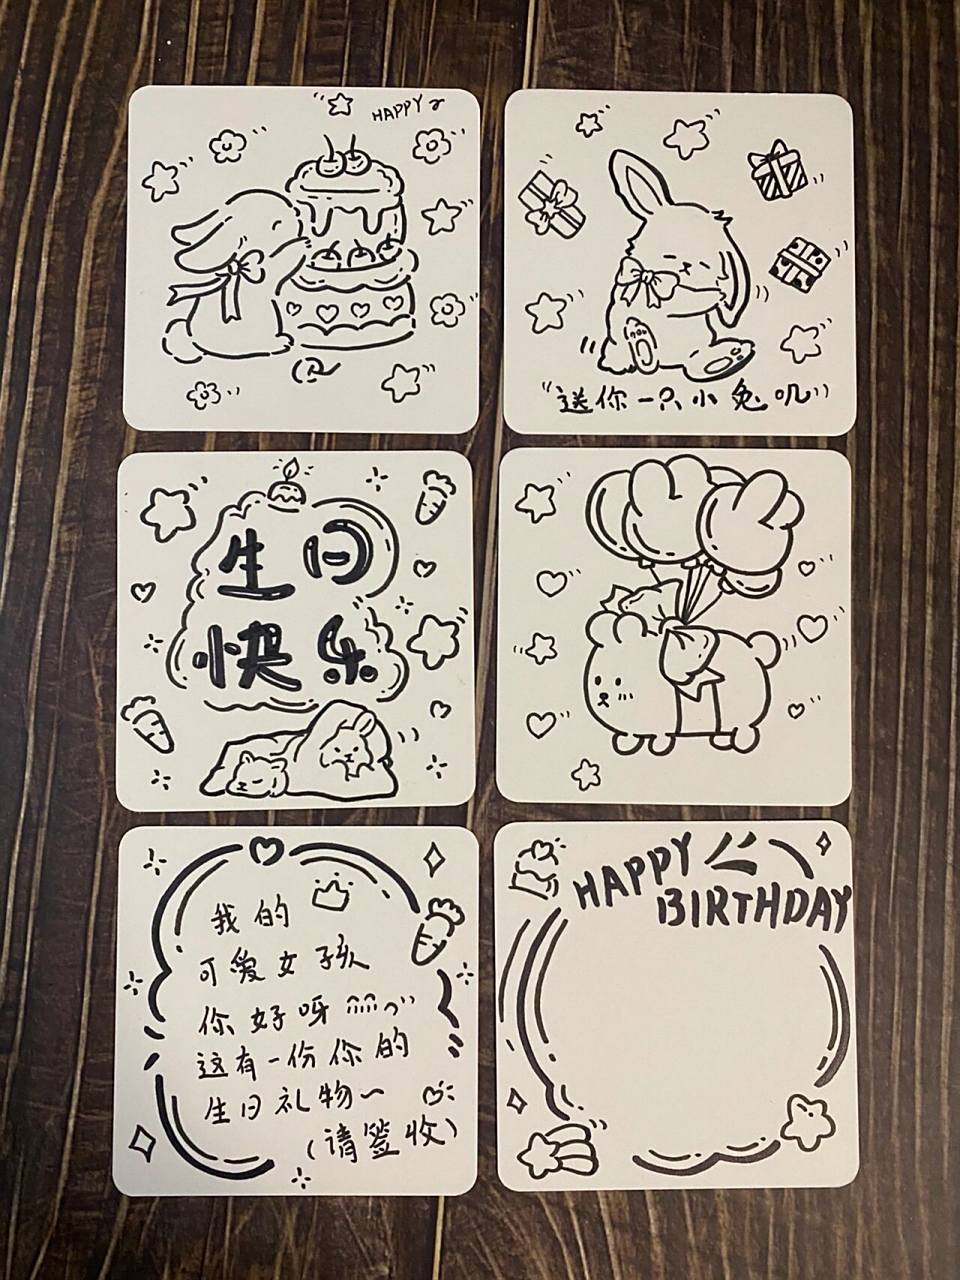 HAPPY
送你一只小兔叽
生日
快乐
我的
可爱女孩
你好呀
这有一份你的
生日礼物～
(请签收)
HAPPY
BIRTHDAY